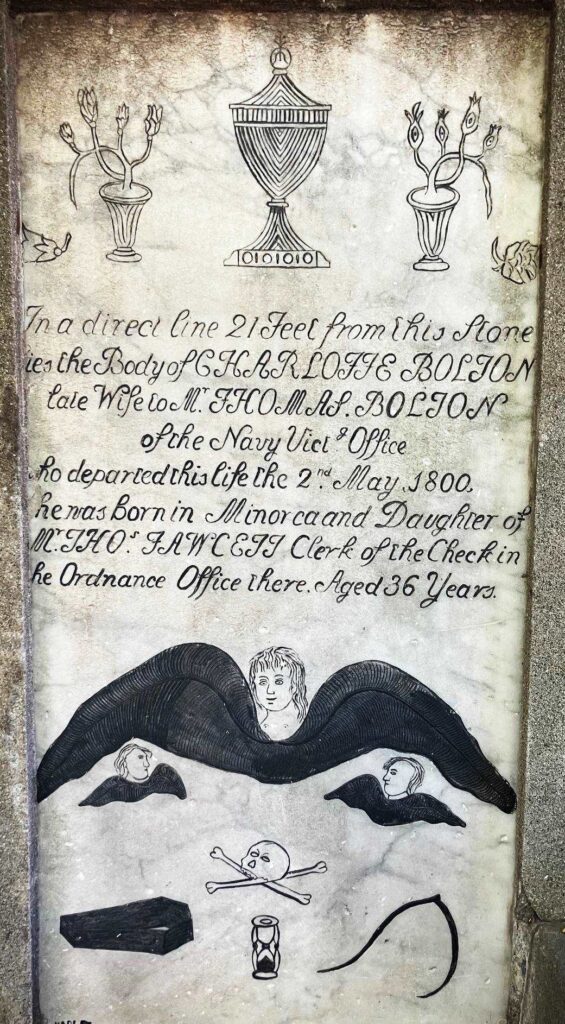 In a direct line 21 Feet from this Stone
ies the Body of CHARLOTTE BOLTON
late Wife to Mr. THOMAS. BOLTON
of the Navy Victg Office
ho departed this life the 2nd May. 1800.
he was Born in Minorca and Daughter of
Mr. THOs FAWCETT Clerk of the Check in
he Ordnance Office there. Aged 36 Years.